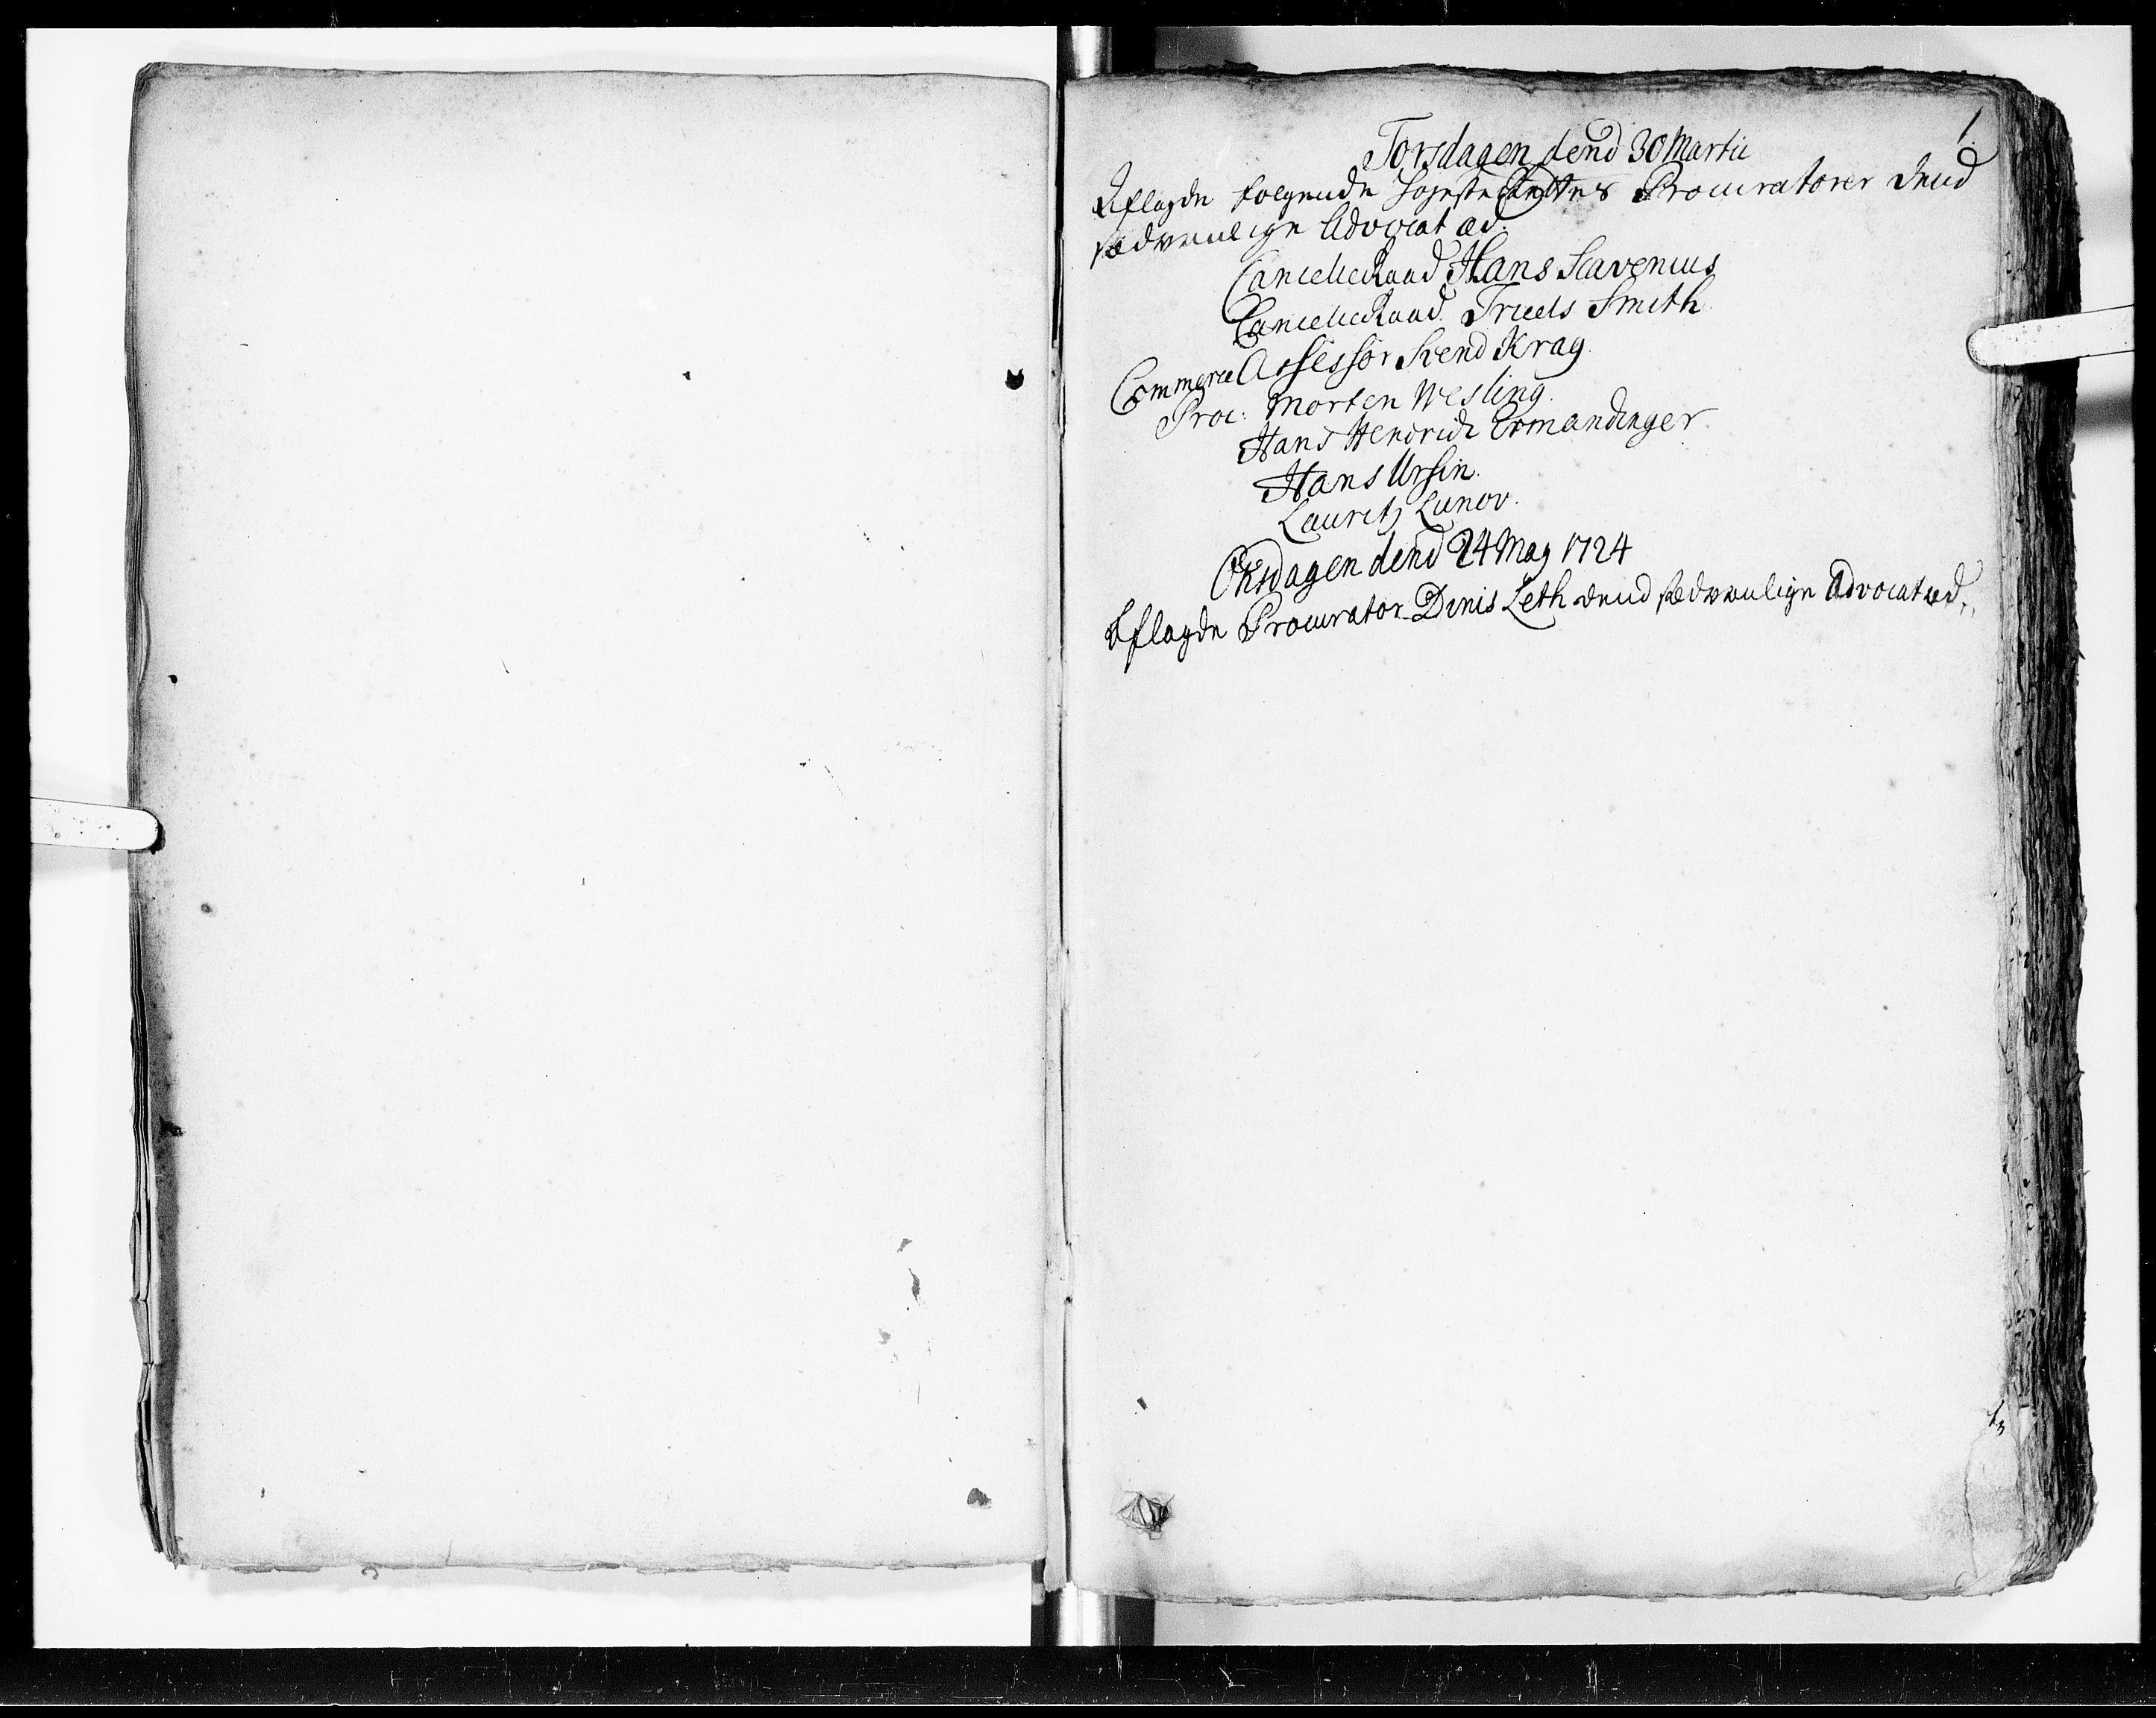 1.
Torsdagen dend 30 Martii
Aflagde følgende Højeste Rettes Procuratorer dend
sædvanlige Advocat æd.
CancelieRaad Hans Scavenius
CancelieRaad Truels Smith
Commerce Assessor Svend Krag.
Proc: Morten Wesling.
Hans Hendrich Ermandinger
Hans Ursin.
Lauritz Lunov.
Onsdagen dend 24 May 1724
Aflagde Procurator Dinis Leth dend sædvanlige Advocat æd.